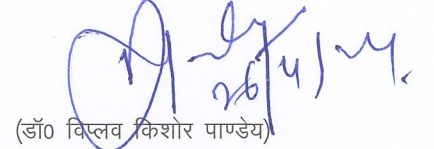 26/4/24.
(डॉ0 विप्लव किशोर पाण्डेय)